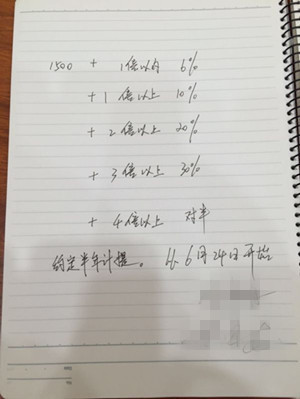 1500 + 1倍以内 6%
+1倍以上 10%
+2倍以上 20%
+3倍以上 30%
+4倍以上 对半
约定半年计提。从6月24日开始